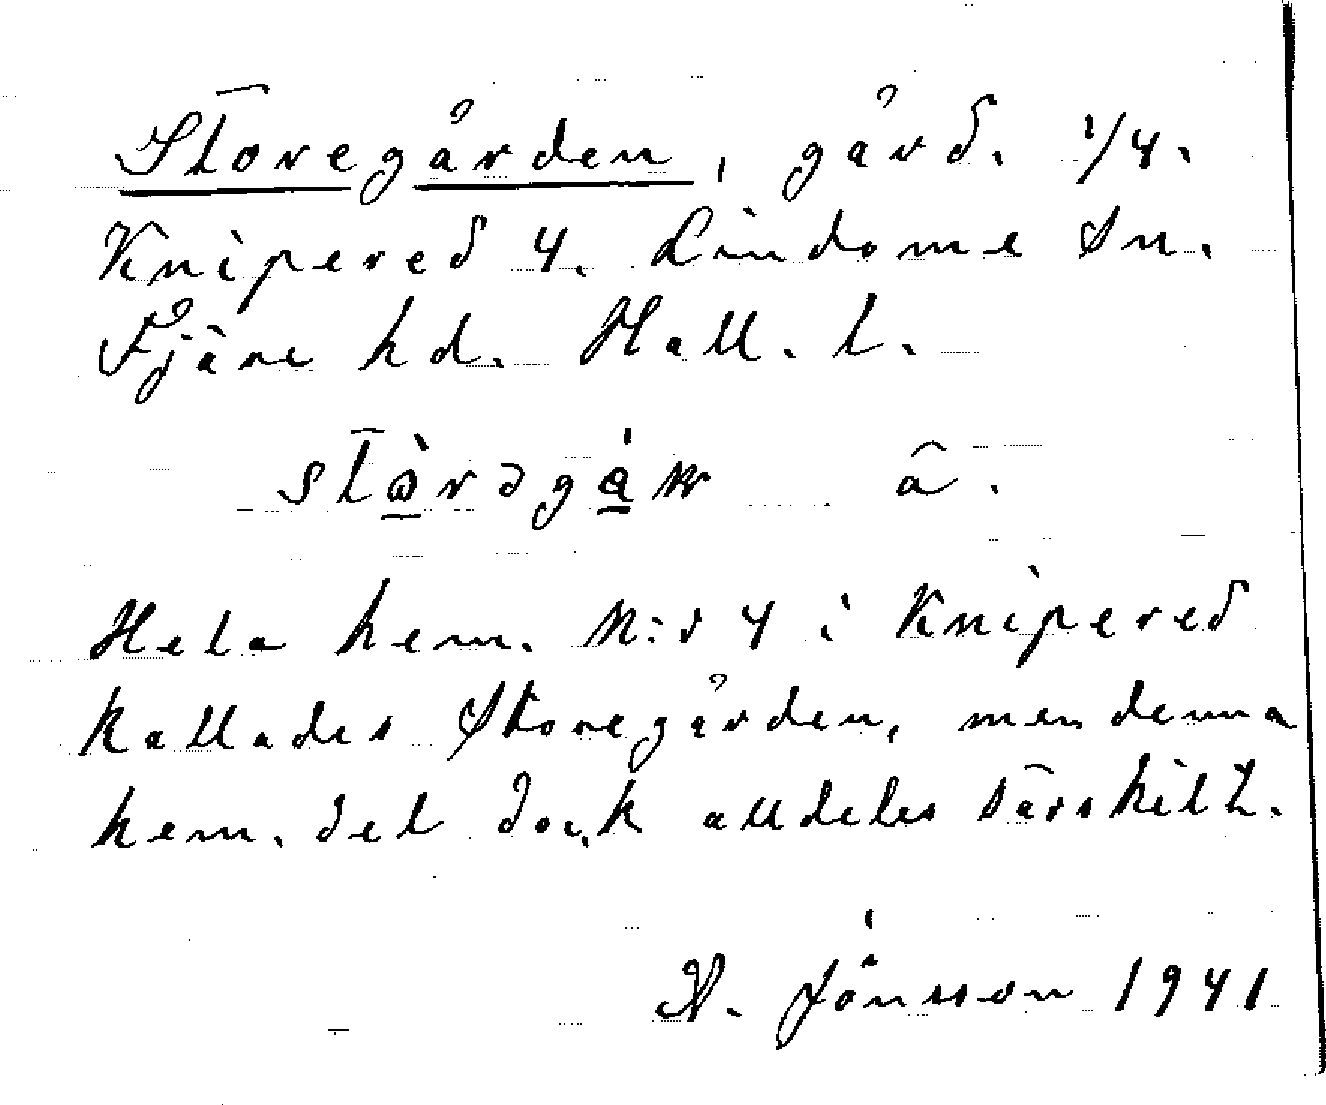 Storegården, gård. 1/4.
Knipered 4. Lindome Sn.
Fjäre hd. Hall. l.
â.
Hela hem. N:o 4 i Knipered
kallades Storegården, men denna
hem. del dock alldeles särskilt.
Jönsson 1941